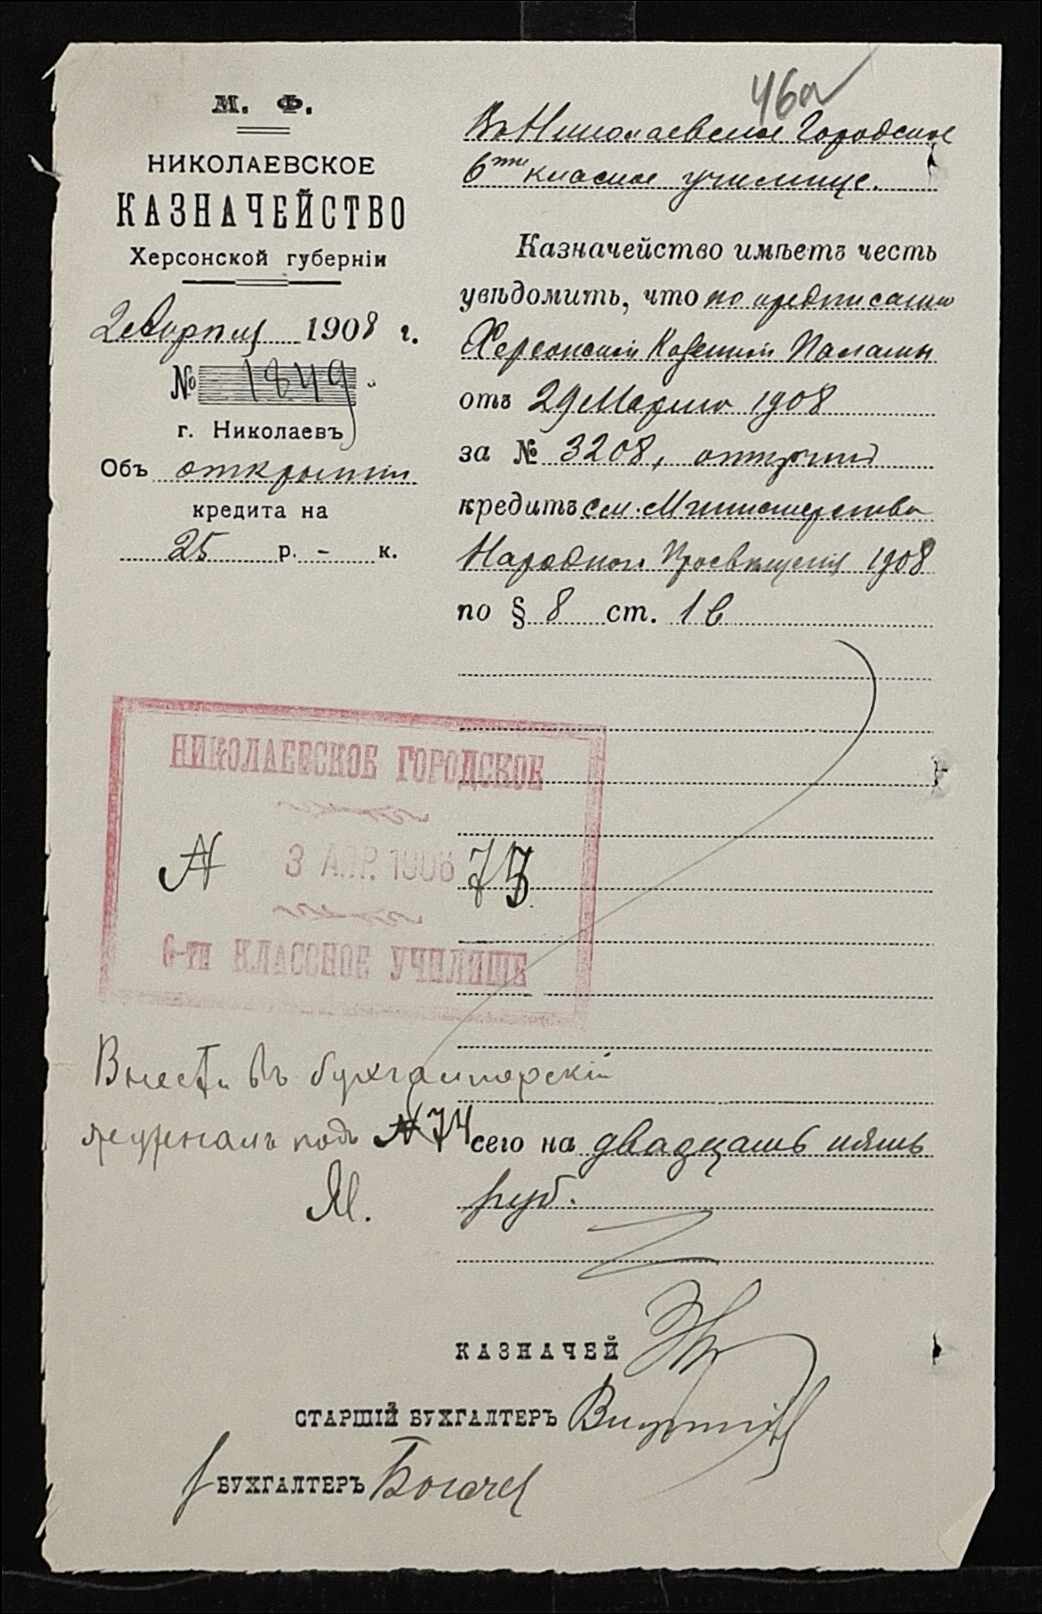 46а
М. Ф.
НИКОЛАЕВСКОЕ
КАЗНАЧЕЙСТВО
Херсонской губерніи
2 Апрѣля 1908 г.
№ 1849
г. Николаевъ
Объ открытіи
кредита на
25 р. - к.
Въ Николаевское Городское
6ти класное училище.
Казначейство имѣетъ честь
увѣдомить, что по предписанію
Херсонской Казенной Палаты
отъ 29 Марта 1908
за № 3208, открытъ
кредитъ см. Министерства
Народнаго Просвѣщенія 1908
по § 8 ст. 1 в
НИКОЛАЕВСКОЕ ГОРОДСКОЕ
№ 3 АПР. 1908
6-ти КЛАССНОЕ УЧИЛИЩЕ
Внести въ бухгалтерскій
журналъ подъ № 74
сего на двадцать пять
руб.
КАЗНАЧЕЙ
СТАРШІЙ БУХГАЛТЕРЪ
БУХГАЛТЕРЪ